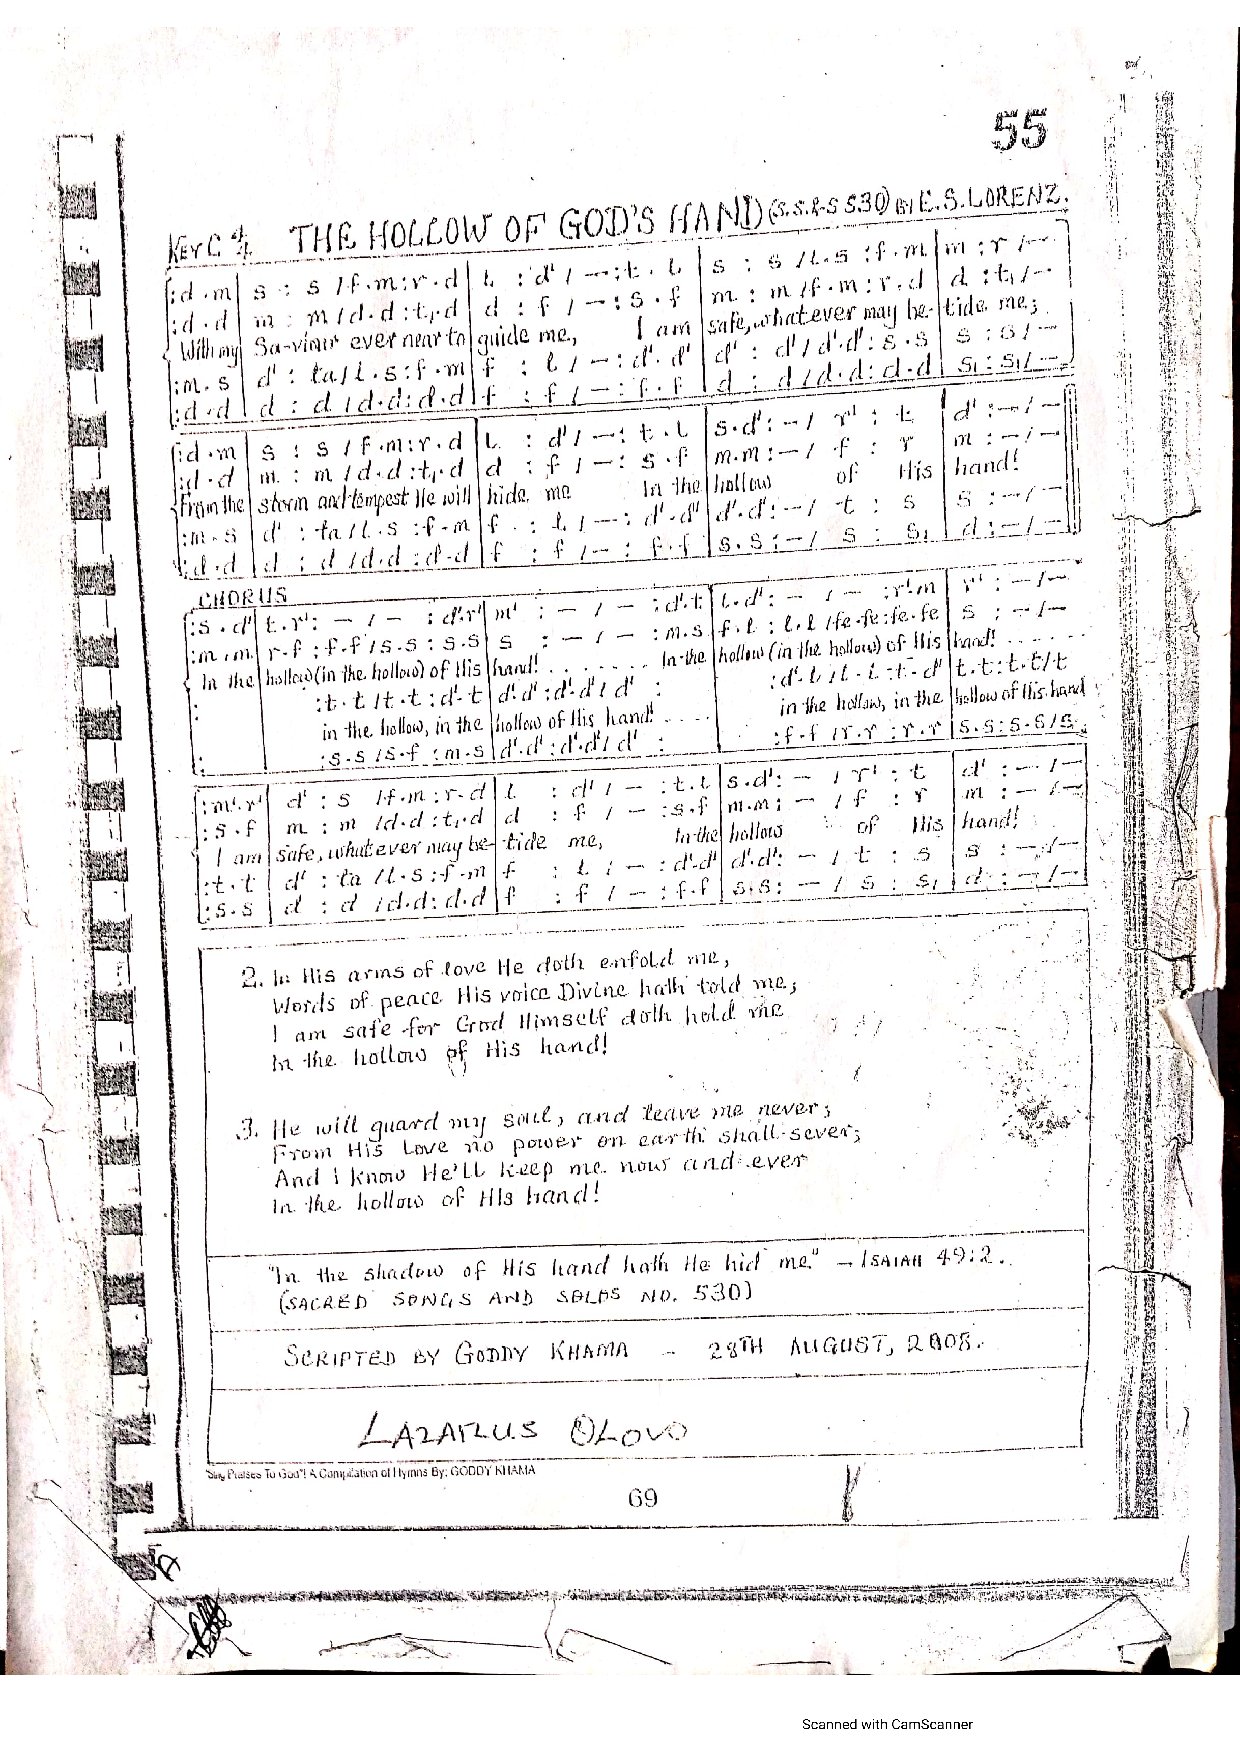 55
KEY C 4/4 THE HOLLOW OF GOD'S HAND (S.S.&S 530) BY E.S. LORENZ.
:d.m | s : s / f.m : r.d | l : d' / — : t.l | s : s / l.s : f.m | m : r / —
:d.d | m : m / d.d : t₁.d | d : f / — : s.f | m : m / f.m : r.d | d : t₁ / —
With my Sa-viour ever near to guide me, I am safe, whatever may be-tide me;
:m.s | d' : ta / l.s : f.m | f : l / — : d'.d' | d' : d' / d'.d' : s.s | s : s / —
:d.d | d : d / d.d : d.d | f : f / — : f.f | d : d / d.d : d.d | s₁ : s₁ / —
:d.m | s : s / f.m : r.d | l : d' / — : t.l | s.d' : — / r' : t | d' : — / —
:d.d | m : m / d.d : t₁.d | d : f / — : s.f | m.m : — / f : r | m : — / —
From the storm and tempest He will hide me In the hollow of His hand!
:m.s | d' : ta / l.s : f.m | f : l / — : d'.d' | d'.d' : — / t : s | s : — / —
:d.d | d : d / d.d : d.d | f : f / — : f.f | s.s : — / s : s₁ | d : — / —
CHORUS
:s.d' | t.r' : — / — : d'.r' | m' : — / — : d'.t | l.d' : — / — : r'.m | r' : — / —
:m.m | r.f : f.f / s.s : s.s | s : — / — : m.s | f.l : l.l / fe.fe : fe.fe | s : — / —
In the hollow (in the hollow) of His hand! ....... In the hollow (in the hollow) of His hand! .......
: | :t.t / t.t : d'.t | d'.d' : d'.d' / d' : | :d'.l / l.l : t.d' | t.t : t.t / t
in the hollow, in the hollow of His hand! .... in the hollow, in the hollow of His hand
: | :s.s / s.f : m.s | d'.d' : d'.d' / d' : | :f.f / r.r : r.r | s.s : s.s / s
:m'.r' | d' : s / f.m : r.d | l : d' / — : t.l | s.d' : — / r' : t | d' : — / —
:s.f | m : m / d.d : t₁.d | d : f / — : s.f | m.m : — / f : r | m : — / —
I am safe, whatever may be-tide me, In the hollow of His hand!
:t.t | d' : ta / l.s : f.m | f : l : — : d'.d' | d'.d' : — / t : s | s : — / —
:s.s | d : d / d.d : d.d | f : f / — : f.f | s.s : — / s : s₁ | d : — / —
2. In His arms of love He doth enfold me,
Words of peace His voice Divine hath told me;
I am safe for God Himself doth hold me
In the hollow of His hand!
3. He will guard my soul, and leave me never;
From His Love no power on earth shall sever;
And I know He'll keep me now and ever
In the hollow of His hand!
"In the shadow of His hand hath He hid me" — ISAIAH 49:2.
(SACRED SONGS AND SOLOS NO. 530)
SCRIPTED BY GODDY KHAMA - 28TH AUGUST, 2008.
LAZARUS OLOVO
"Sing Praises To God"! A Compilation of Hymns By: GODDY KHAMA
69
Scanned with CamScanner